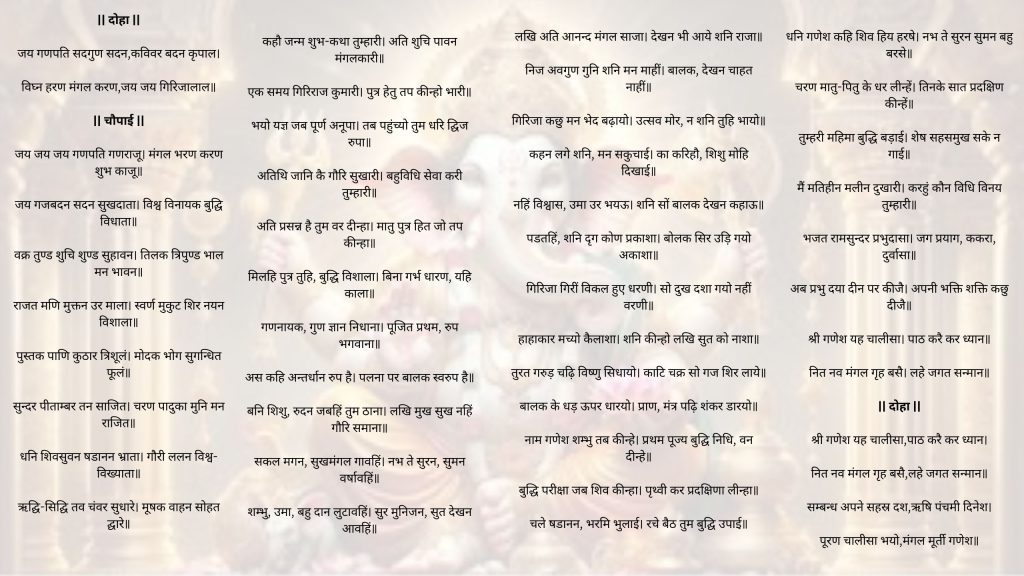 || दोहा ||
जय गणपति सदगुण सदन,कविवर बदन कृपाल।
विघ्न हरण मंगल करण,जय जय गिरिजालाल॥
|| चौपाई ||
जय जय जय गणपति गणराजू। मंगल भरण करण
शुभ काजू॥
जय गजबदन सदन सुखदाता। विश्व विनायक बुद्धि
विधाता॥
वक्र तुण्ड शुचि शुण्ड सुहावन। तिलक त्रिपुण्ड भाल
मन भावन॥
राजत मणि मुक्तन उर माला। स्वर्ण मुकुट शिर नयन
विशाला॥
पुस्तक पाणि कुठार त्रिशूलं। मोदक भोग सुगन्धित
फूलं॥
सुन्दर पीताम्बर तन साजित। चरण पादुका मुनि मन
राजित॥
धनि शिवसुवन षडानन भ्राता। गौरी ललन विश्व-
विख्याता॥
ऋद्धि-सिद्धि तव चंवर सुधारे। मूषक वाहन सोहत
द्वारे॥
कहौ जन्म शुभ-कथा तुम्हारी। अति शुचि पावन
मंगलकारी॥
एक समय गिरिराज कुमारी। पुत्र हेतु तप कीन्हो भारी॥
भयो यज्ञ जब पूर्ण अनूपा। तब पहुंच्यो तुम धरि द्विज
रुपा॥
अतिथि जानि कै गौरि सुखारी। बहुविधि सेवा करी
तुम्हारी॥
अति प्रसन्न है तुम वर दीन्हा। मातु पुत्र हित जो तप
कीन्हा॥
मिलहि पुत्र तुहि, बुद्धि विशाला। बिना गर्भ धारण, यहि
काला॥
गणनायक, गुण ज्ञान निधाना। पूजित प्रथम, रुप
भगवाना॥
अस कहि अन्तर्धान रुप है। पलना पर बालक स्वरुप है॥
बनि शिशु, रुदन जबहिं तुम ठाना। लखि मुख सुख नहिं
गौरि समाना॥
सकल मगन, सुखमंगल गावहिं। नभ ते सुरन, सुमन
वर्षावहिं॥
शम्भु, उमा, बहु दान लुटावहिं। सुर मुनिजन, सुत देखन
आवहिं॥
लखि अति आनन्द मंगल साजा। देखन भी आये शनि राजा॥
निज अवगुण गुनि शनि मन माहीं। बालक, देखन चाहत
नाहीं॥
गिरिजा कछु मन भेद बढ़ायो। उत्सव मोर, न शनि तुहि भायो॥
कहन लगे शनि, मन सकुचाई। का करिहौ, शिशु मोहि
दिखाई॥
नहिं विश्वास, उमा उर भयऊ। शनि सों बालक देखन कहाऊ॥
पडतहिं, शनि दृग कोण प्रकाशा। बोलक सिर उड़ि गयो
अकाशा॥
गिरिजा गिरीं विकल हुए धरणी। सो दुख दशा गयो नहीं
वरणी॥
हाहाकार मच्यो कैलाशा। शनि कीन्हो लखि सुत को नाशा॥
तुरत गरुड़ चढ़ि विष्णु सिधायो। काटि चक्र सो गज शिर लाये॥
बालक के धड़ ऊपर धारयो। प्राण, मंत्र पढ़ि शंकर डारयो॥
नाम गणेश शम्भु तब कीन्हे। प्रथम पूज्य बुद्धि निधि, वन
दीन्हे॥
बुद्धि परीक्षा जब शिव कीन्हा। पृथ्वी कर प्रदक्षिणा लीन्हा॥
चले षडानन, भरमि भुलाई। रचे बैठ तुम बुद्धि उपाई॥
धनि गणेश कहि शिव हिय हरषे। नभ ते सुरन सुमन बहु
बरसे॥
चरण मातु-पितु के धर लीन्हें। तिनके सात प्रदक्षिण
कीन्हें॥
तुम्हरी महिमा बुद्धि बड़ाई। शेष सहसमुख सके न
गाई॥
मैं मतिहीन मलीन दुखारी। करहुं कौन विधि विनय
तुम्हारी॥
भजत रामसुन्दर प्रभुदासा। जग प्रयाग, ककरा,
दुर्वासा॥
अब प्रभु दया दीन पर कीजै। अपनी भक्ति शक्ति कछु
दीजै॥
श्री गणेश यह चालीसा। पाठ करै कर ध्यान॥
नित नव मंगल गृह बसै। लहे जगत सन्मान॥
|| दोहा ||
श्री गणेश यह चालीसा,पाठ करै कर ध्यान।
नित नव मंगल गृह बसै,लहे जगत सन्मान॥
सम्बन्ध अपने सहस्र दश,ऋषि पंचमी दिनेश।
पूरण चालीसा भयो,मंगल मूर्ती गणेश॥